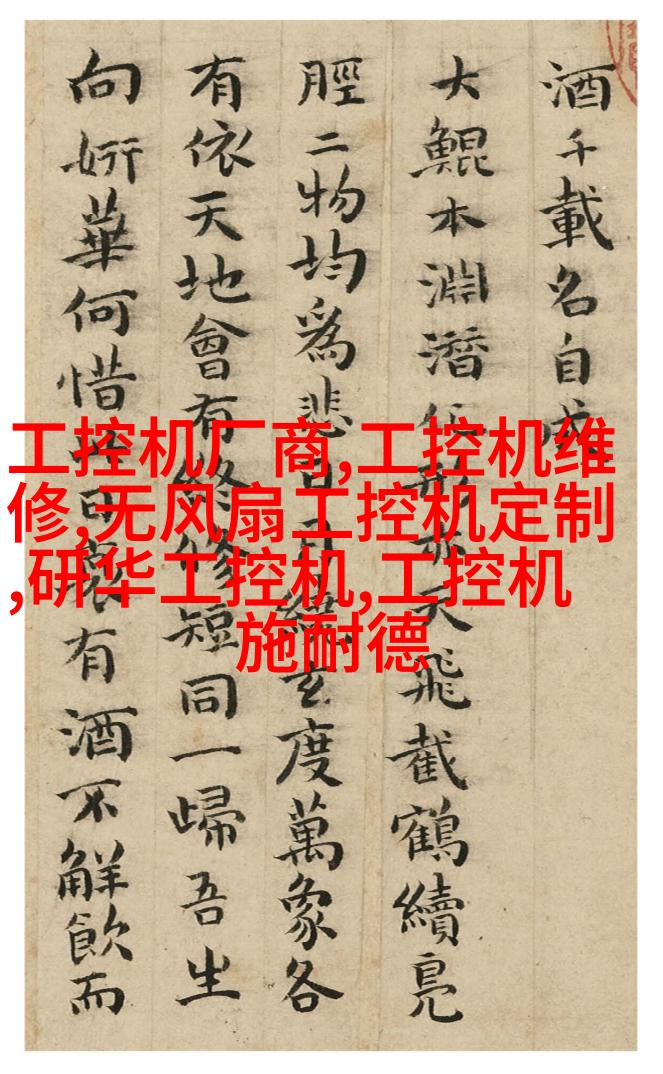 酒千載名自成
大鯤本淵潛天飛截鶴續鳧
脛二物均爲悲玄度萬象各
有依天地會有終脩短同一歸吾生
向妍華何惜日有酒不解飲而
工控机厂商,工控机维
修,无风扇工控机定制
,研华工控机,工控机
施耐德